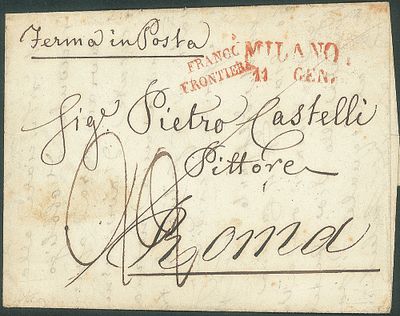 Ferma in Posta
FRANCO
FRONTIERA
MILANO
11 GEN.
Sigr. Pietro Castelli
Pittore
Roma